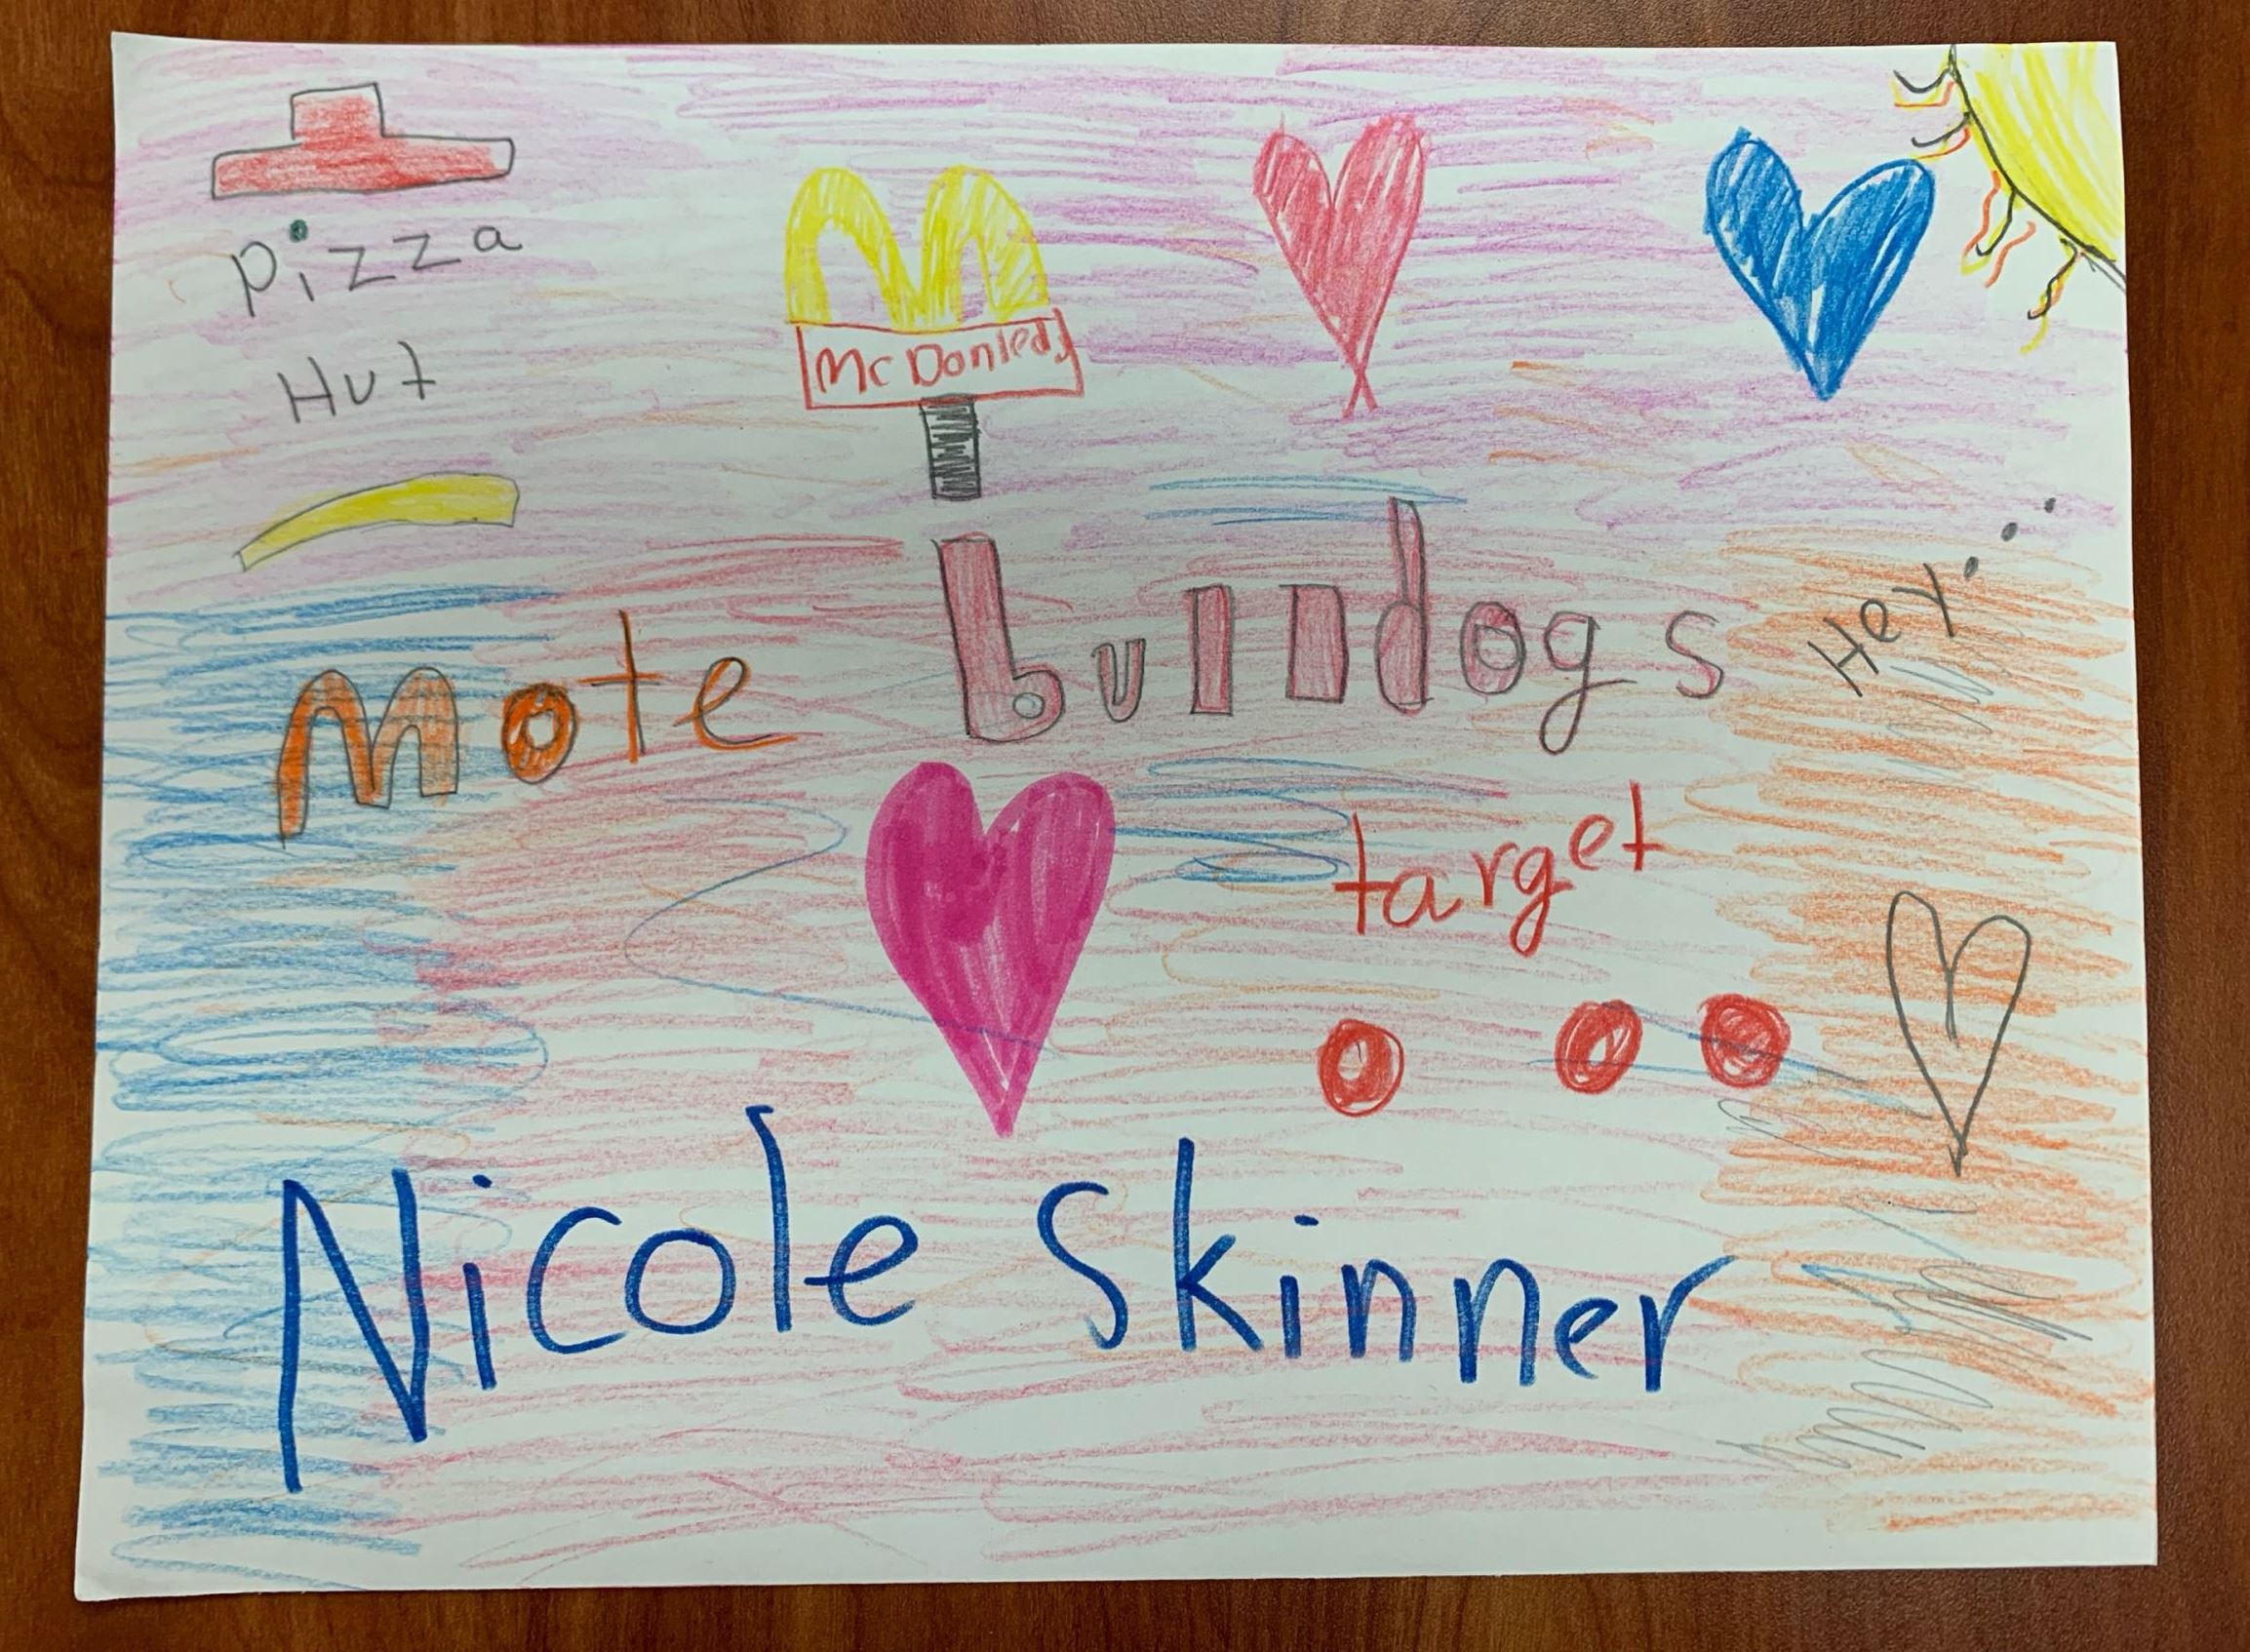 pizza
Hut
McDonleds
Mote bulldogs
Hey...
target
Nicole Skinner